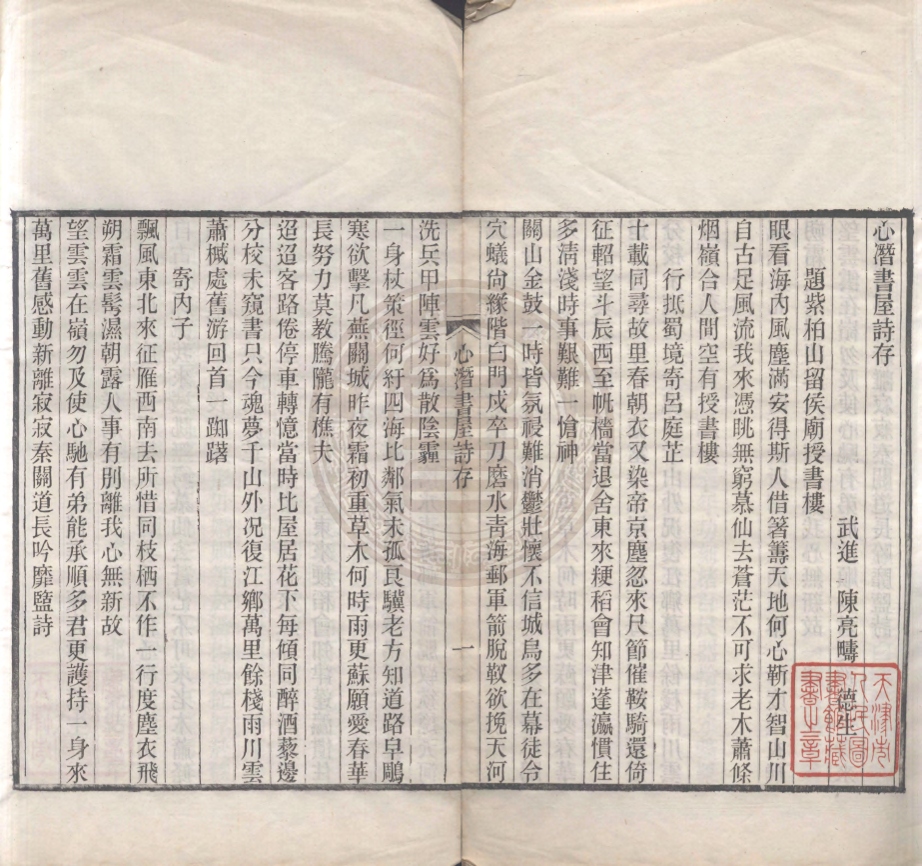 心潛書屋詩存
武進 陳亮疇 德生
題紫柏山留侯廟授書樓
眼看海內風塵滿安得斯人借箸籌天地何心靳才智山川
自古足風流我來憑眺無窮慕仙去蒼茫不可求老木蕭條
烟嶺合人間空有授書樓
行抵蜀境寄呂庭芷
十載同尋故里春朝衣又染帝京塵忽來尺節催鞍騎還倚
征軺望斗辰西至帆檣當退舍東來粳稻會知津蓬瀛慣住
多清淺時事艱難一愴神
關山金鼓一時皆氛祲難消鬱壯懷不信城烏多在幕徒令
穴蟻尙緣階白門戍卒刀磨水青海郵軍箭脫靫欲挽天河
洗兵甲陣雲好爲散陰霾
一身杖策徑何紆四海比鄰氣未孤良驥老方知道路皁鵰
寒欲擊凡蕪關城昨夜霜初重草木何時雨更蘇願愛春華
長努力莫教騰隴有樵夫
迢迢客路倦停車轉憶當時比屋居花下每傾同醉酒藜邊
分校未窺書只今魂夢千山外況復江鄉萬里餘棧雨川雲
蕭槭處舊游回首一踟躇
寄內子
飄風東北來征雁西南去所惜同枝栖不作一行度塵衣飛
朔霜雲髩濕朝露人事有別離我心無新故
望雲雲在嶺勿及使心馳有弟能承順多君更護持一身來
萬里舊感動新離寂寂秦關道長吟靡盬詩
心潛書屋詩存
一
天津市
人民圖
書館藏
書之章